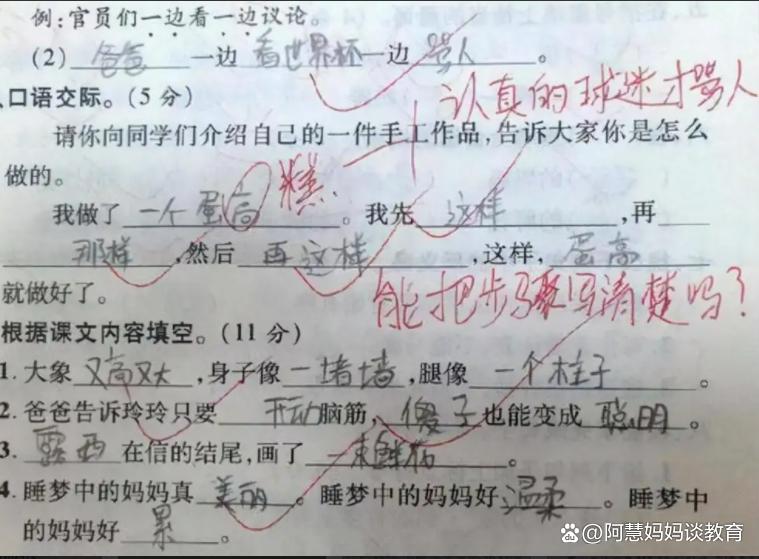 例:官员们一边看一边议论。
(2) 爸爸 一边 看世界杯 一边 骂人 。
认真的球迷才骂人
口语交际。(5 分)
请你向同学们介绍自己的一件手工作品,告诉大家你是怎么
做的。
糕
我做了 一个蛋高 。我先 这样 ,再
那样 ,然后 再这样 ,这样, 蛋高
就做好了。
能把步骤写清楚吗?
根据课文内容填空。(11 分)
1. 大象 又高又大 ,身子像 一堵墙 ,腿像 一个柱子 。
2. 爸爸告诉玲玲只要 开动 脑筋, 傻子 也能变成 聪明 。
3. 露西 在信的结尾,画了 一束鲜花 。
4. 睡梦中的妈妈真 美丽 。睡梦中的妈妈好 温柔 。睡梦中
的妈妈好 累 。
阿慧妈妈谈教育